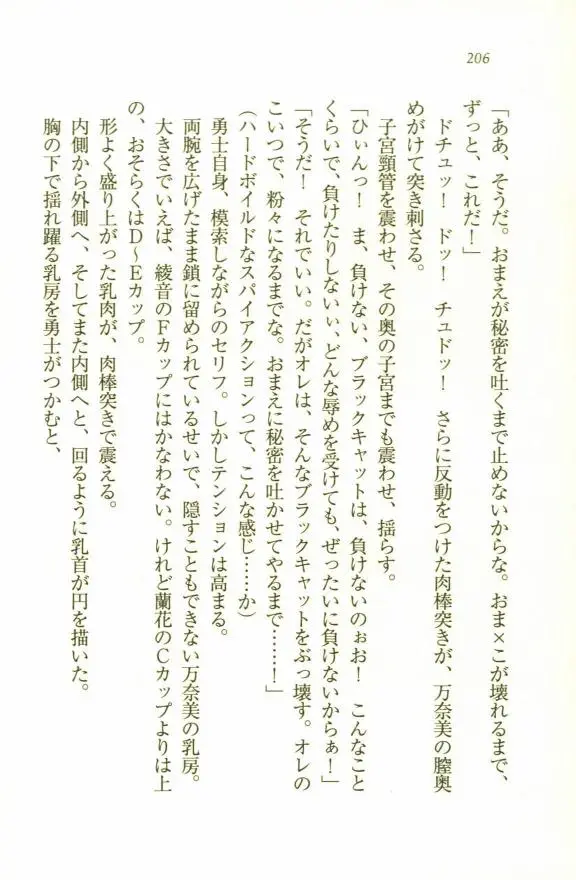 206
「ああ、そうだ。おまえが秘密を吐くまで止めないからな。おま×こが壊れるまで、
ずっと、これだ！」
ドチュッ！　ドッ！　チュドッ！　さらに反動をつけた肉棒突きが、万奈美の膣奥
めがけて突き刺さる。
子宮頸管を震わせ、その奥の子宮までも震わせ、揺らす。
「ひぃんっ！　ま、負けない、ブラックキャットは、負けないのぉお！　こんなこと
くらいで、負けたりしないぃ、どんな辱めを受けても、ぜったいに負けないからぁ！」
「そうだ！　それでいい。だがオレは、そんなブラックキャットをぶっ壊す。オレの
こいつで、粉々になるまでな。おまえに秘密を吐かせてやるまで……！」
（ハードボイルドなスパイアクションって、こんな感じ……か）
勇士自身、模索しながらのセリフ。しかしテンションは高まる。
両腕を広げたまま鎖に留められているせいで、隠すこともできない万奈美の乳房。
大きさでいえば、綾音のＦカップにはかなわない。けれど蘭花のＣカップよりは上
の、おそらくはＤ～Ｅカップ。
形よく盛り上がった乳肉が、肉棒突きで震える。
内側から外側へ、そしてまた内側へと、回るように乳首が円を描いた。
胸の下で揺れ躍る乳房を勇士がつかむと、